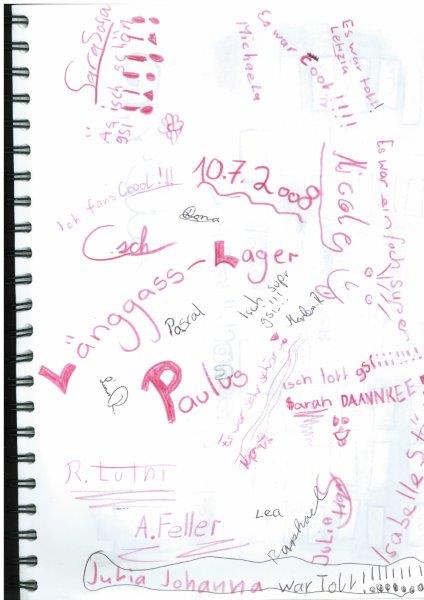 SaraSaya
Äs isch schön gsi
Es war
cool!!!!!
Michaela
Es war toll!
Letizia
Es war einfach super
Nicole
Ich fans Coool!!!
10.7.2008
C.sch
Länggass-Lager
Paulus
Pascal
Isch supr gsi!!!
Es war sehr schön
isch toll gsi!!!!!!
Sarah DAANNKEE
R. Luthi
A. Feller
Lea
Raphael
Julia
Isabelle
Julia Johanna war Toll!!!!!!!!